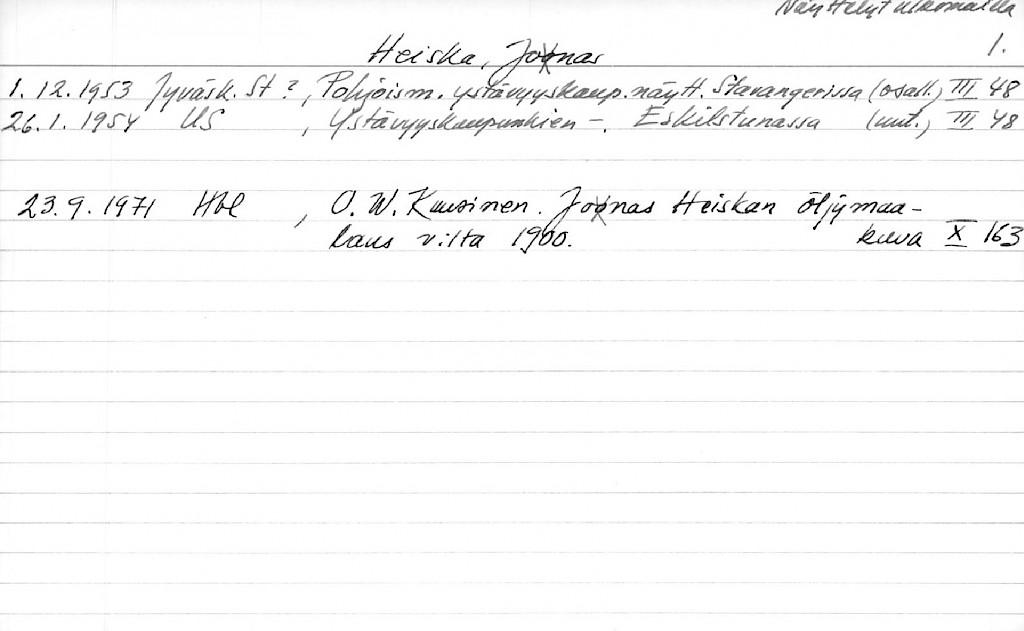 Näyttelyt ulkomailla
1.
Heiska, Joonas
1.12.1953 Jyväsk. St ?, Pohjoism. ystävyyskaup.näytt. Stavangerissa (osall.) III 48
26.1.1954 US , Ystävyyskaupunkien -, Eskilstunassa (mt.) III 48
23.9.1971 Hbl , O. W. Kuusinen. Joonas Heiskan öljymaa-
laus vilta 1900. kuva X 163